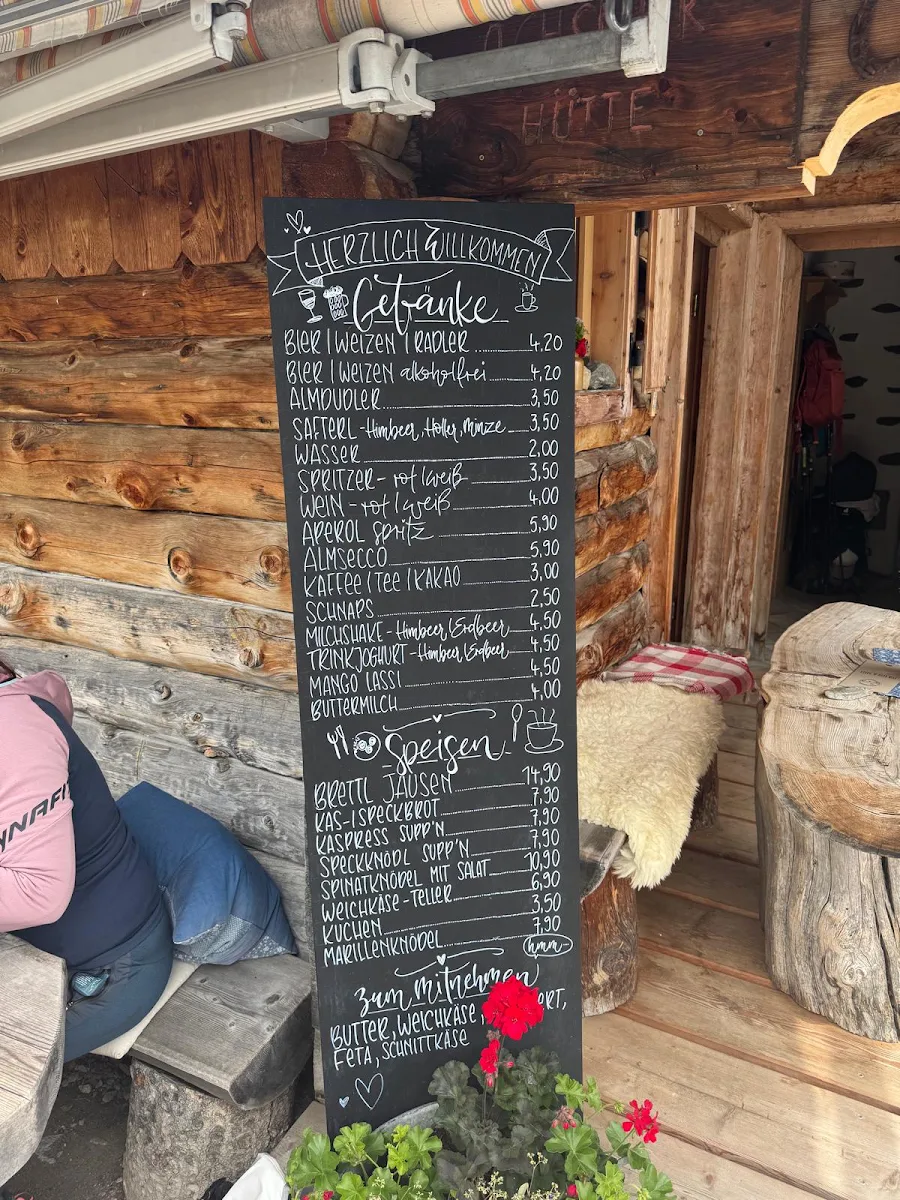 HÜTTE
HERZLICH WILLKOMMEN
Getränke
BIER | WEIZEN | RADLER 4,20
BIER | WEIZEN alkoholfrei 4,20
ALMDUDLER 3,50
SAFTERL - Himbeer, Holler, Minze 3,50
WASSER 2,00
SPRITZER - rot | weiß 3,50
WEIN - rot | weiß 4,00
APEROL Spritz 5,90
ALMSECCO 5,90
KAFFEE | TEE | KAKAO 3,00
SCHNAPS 2,50
MILCHSHAKE - Himbeer | Erdbeer 4,50
TRINKJOGHURT - Himbeer | Erdbeer 4,50
MANGO LASSI 4,50
BUTTERMILCH 4,00
Speisen
BRETTL JAUSEN 14,90
KAS- | SPECKBROT 7,90
KASPRESS SUPP'N 7,90
SPECKKNÖDL SUPP'N 7,90
SPINATKNÖDEL MIT SALAT 10,90
WEICHKÄSE-TELLER 6,90
KUCHEN 3,50
MARILLENKNÖDEL 7,90
hmm~
zum mitnehmen
BUTTER, WEICHKÄSE,
FETA, SCHNITTKÄSE